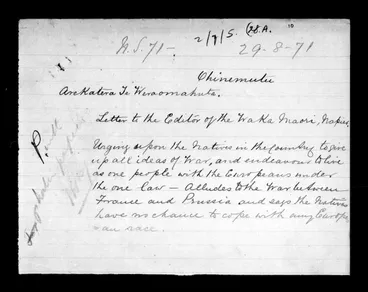 N.S. 71-. 2/9/5. 29-8-71
Ohinemutu
Arekatera Te Wiroomahuta.
Letter to the Editor of the Waka Maori, Napier,
Urging upon the Natives in the country to give
up all ideas of War, and endeavour to live
as one people with the Europeans under
the one law — Alludes to the War between
France and Prussia and says the Natives
have no chance to cope with any Europe
-an race.